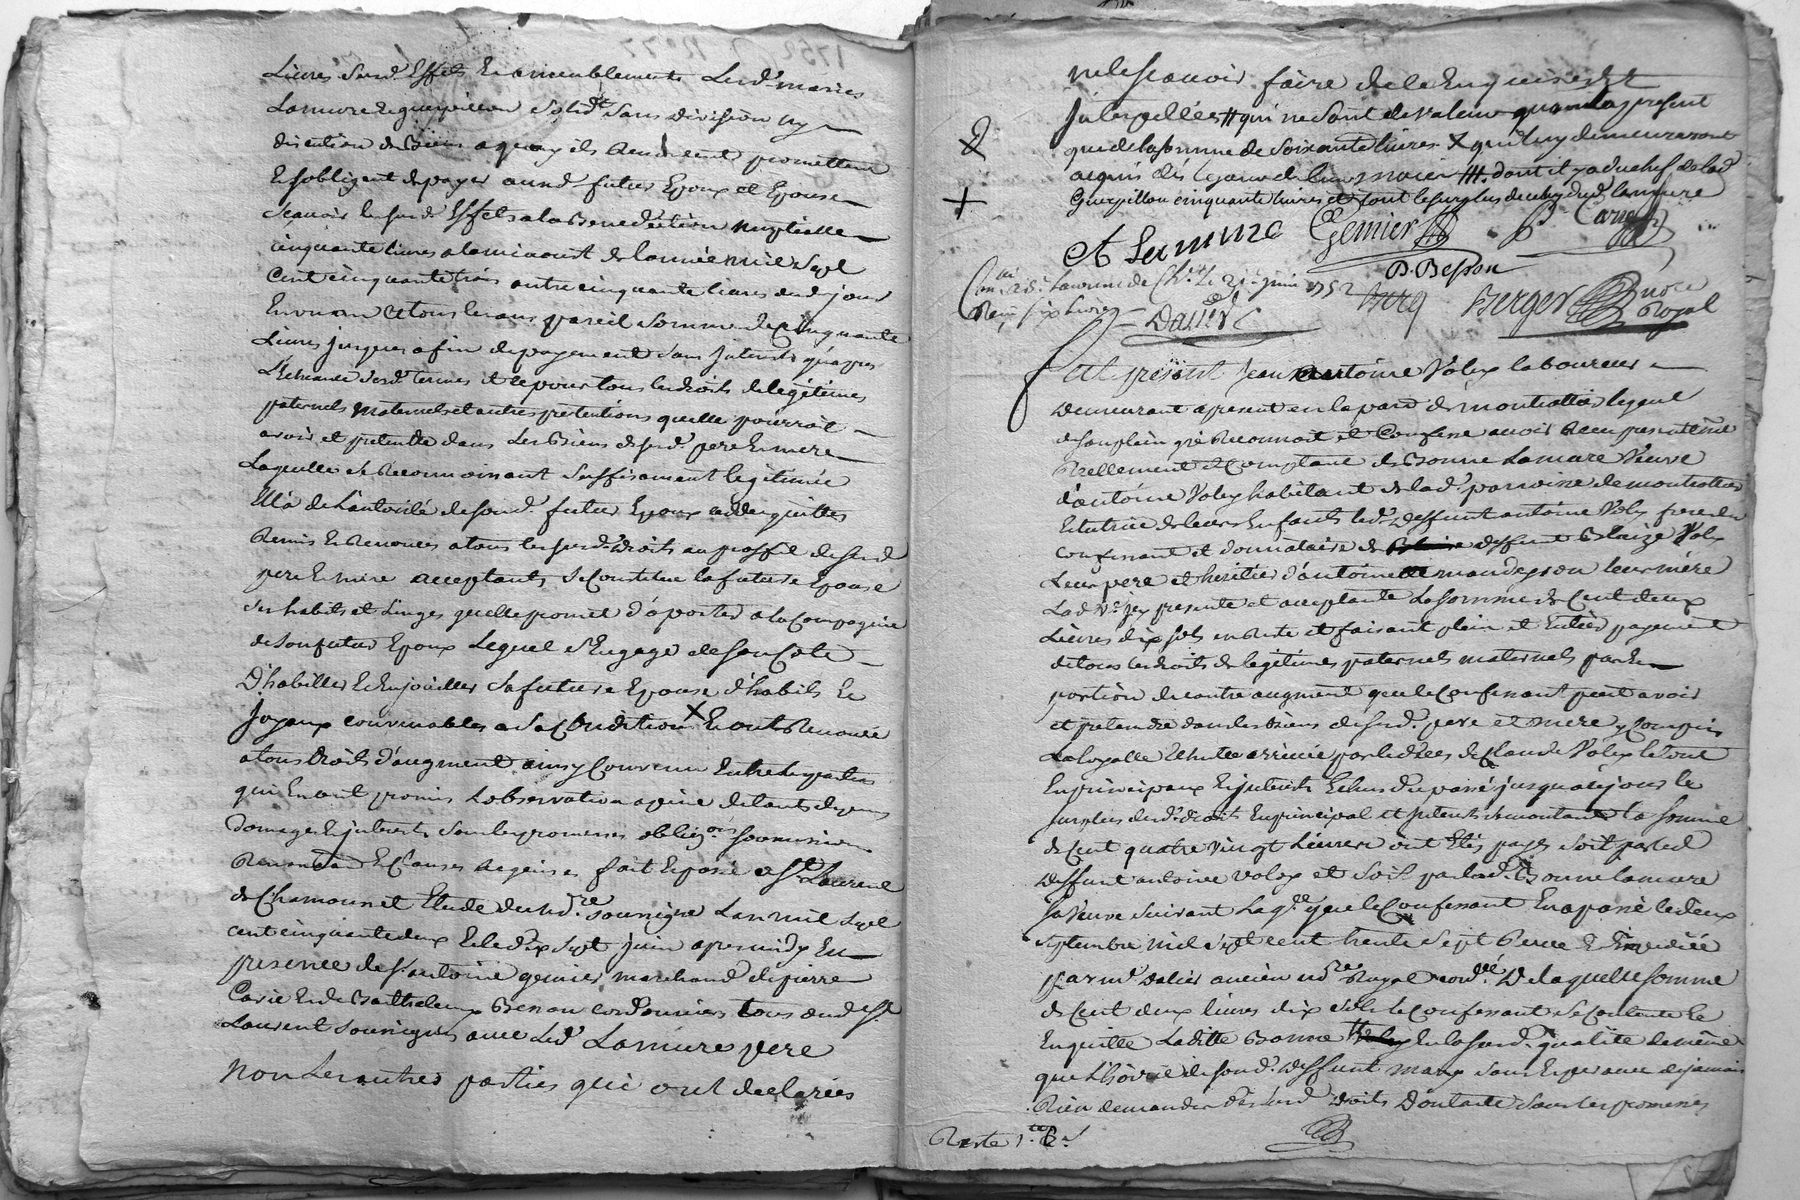 Livres Surd. Effets En ameublements Lesd. mariés
Lamure Et guerpillon solidt. sans division ny
discution de Biens a quoy ils Renoncent promettent
Et sobligent de payer ausd. futurs Epoux et Epouse
scavoir les surd. Effets a la Benediction nuptialle
cinquante livres a la mi aoust de lannée mil sept
Cent cinquante trois autre cinquante livres aud. jour
En un an et tous les ans pareil somme de Cinquante
Livres jusques a fin de payement sans jnterests qu'apres
L'Echeance desd. termes et ce pour tous les droits de legitimes
paternels maternels et autres pretentions quelle pourroit
avoir et pretendre dans Les Biens desd. pere Et mere
Laquelle se Reconnoissant suffisament legitimée
Et a de L'autorité de sond. futur Epoux
Remis Et Renoncés a tous les surd. droits au proffit de sesd
pere Et mere acceptants, se Constitue la future Epouse
ses habits et Linges quelle promet d'aporter a la Compagnie
de son futur Epoux Lequel s'Engage de son Coté
D'habiller Et Enjoüailler sa future Epouse d'habits Et
Joyaux convenables a sa Condition X Et ont Renoncé
a tous droits d'augment ainsy Convenu Entre les parties
qui En ont promis L'observation a peine de tous depens
Domages Et jnterests sous les promesses obligons. soumissions
Renonõn. Et Clauses Requises fait Et passé a St. Laurent
de Chamousset Etude du nore. soussigné Lan mil sept
cent cinquante deux Et le dix sept juin apres midy En
presence de sr. antoine gemier marchand de pierre
Carie Et de Barthelemy Besson cordonniers tous dud. St.
Laurent soussignés avec led. Lamure pere
Non Les autres parties qui ont declarées
ne le scavoir faire de ce Enquises Et
jnterpellées # qui ne sont de valeur quand a present
que de la somme de soixante livres X qui luy demeureront
acquis dès le jour de leur noces ///. dont il y a du chef de lad
Guerpillon cinquante livres et tout le surplus de celuy dud. lamure
A Lamure Gemier B. Carry
B. Besson
Conlé. a St. Laurent de Cht. Le 21e. juin 1752
Reçu six livres
Dalier
Berger nore
Royal
Fut présent Jean antoine Volay laboureur
demeurant a present en la paroisse de montrottier lequel
de son plein gré Reconnoit et Confesse avoir Receu presentemt
Reellement et Comptant de Bonne Lamure Veuve
d'antoine Volay habitant de lad. paroisse de montrottier
Et tutrice de leurs Enfants led. deffunt antoine Volay frere du
confessant et donnataire de deffunt Blaize Volay
Leur pere et heritier d'antoinette leur mère
Lad. Ve. jcy presente et acceptante La somme de Cent deux
Livres dix sols en Reste et faisant plein et Entier payement
de tous les droits de legitimes paternels maternels part Et
portion de contre augment que le Confessant peut avoir
et pretendre dans les biens de sesd. pere et mere y Compris
Claude Volay le tout
En principaux Et jnterests Echus du passé jusqua ce jour le
surplus desd. droits En principal et jnterests se montant la somme
de Cent quatre vingt Livres ont Etés payés soit par led
deffunt antoine volay et soit par lad. Bonne lamure
sa Veuve suivant Laqce. que le Confessant En a passé le deux
septembre mil sept cent trente sept Receue Et Expediée
par me. Dalier ancien nore Royal De laquelle somme
de Cent deux livres dix sols le Confessant se Contente Et
En quitte Laditte Bonne En lasurd. qualité de même
que L'hoirie de sond. deffunt mary sans Esperance de jamais
Rien demander desd. droits dont acte sous les promesses
Reste 1re. Ce.